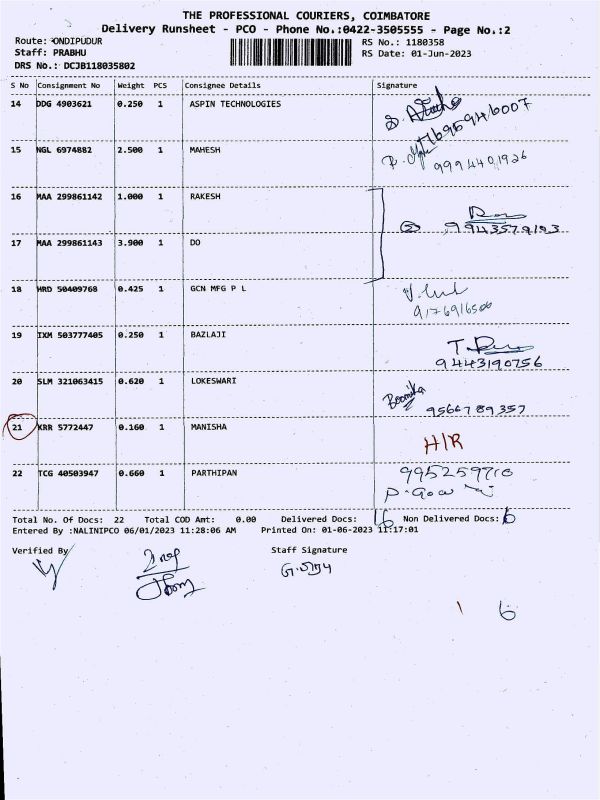 THE PROFESSIONAL COURIERS, COIMBATORE
Delivery Runsheet - PCO - Phone No.:0422-3505555 - Page No.:2
Route: ONDIPUDUR RS No.: 1180358
Staff: PRABHU RS Date: 01-Jun-2023
DRS No.: DCJB118035802
S No Consignment No Weight PCS Consignee Details Signature
14 DDG 4903621 0.250 1 ASPIN TECHNOLOGIES
15 NGL 6974882 2.500 1 MAHESH
9994401926
16 MAA 299861142 1.000 1 RAKESH
17 MAA 299861143 3.900 1 DO
18 MRD 50409768 0.425 1 GCN MFG P L
19 IXM 503777405 0.250 1 BAZLAJI
9443190756
20 SLM 321063415 0.620 1 LOKESWARI
Boomika
9566789357
21 KRR 5772447 0.160 1 MANISHA
H/R
22 TCG 40503947 0.660 1 PARTHIPAN
Total No. Of Docs: 22 Total COD Amt: 0.00 Delivered Docs: 16 Non Delivered Docs: 6
Entered By :NALINIPCO 06/01/2023 11:28:06 AM Printed On: 01-06-2023 11:17:01
Verified By Staff Signature
6